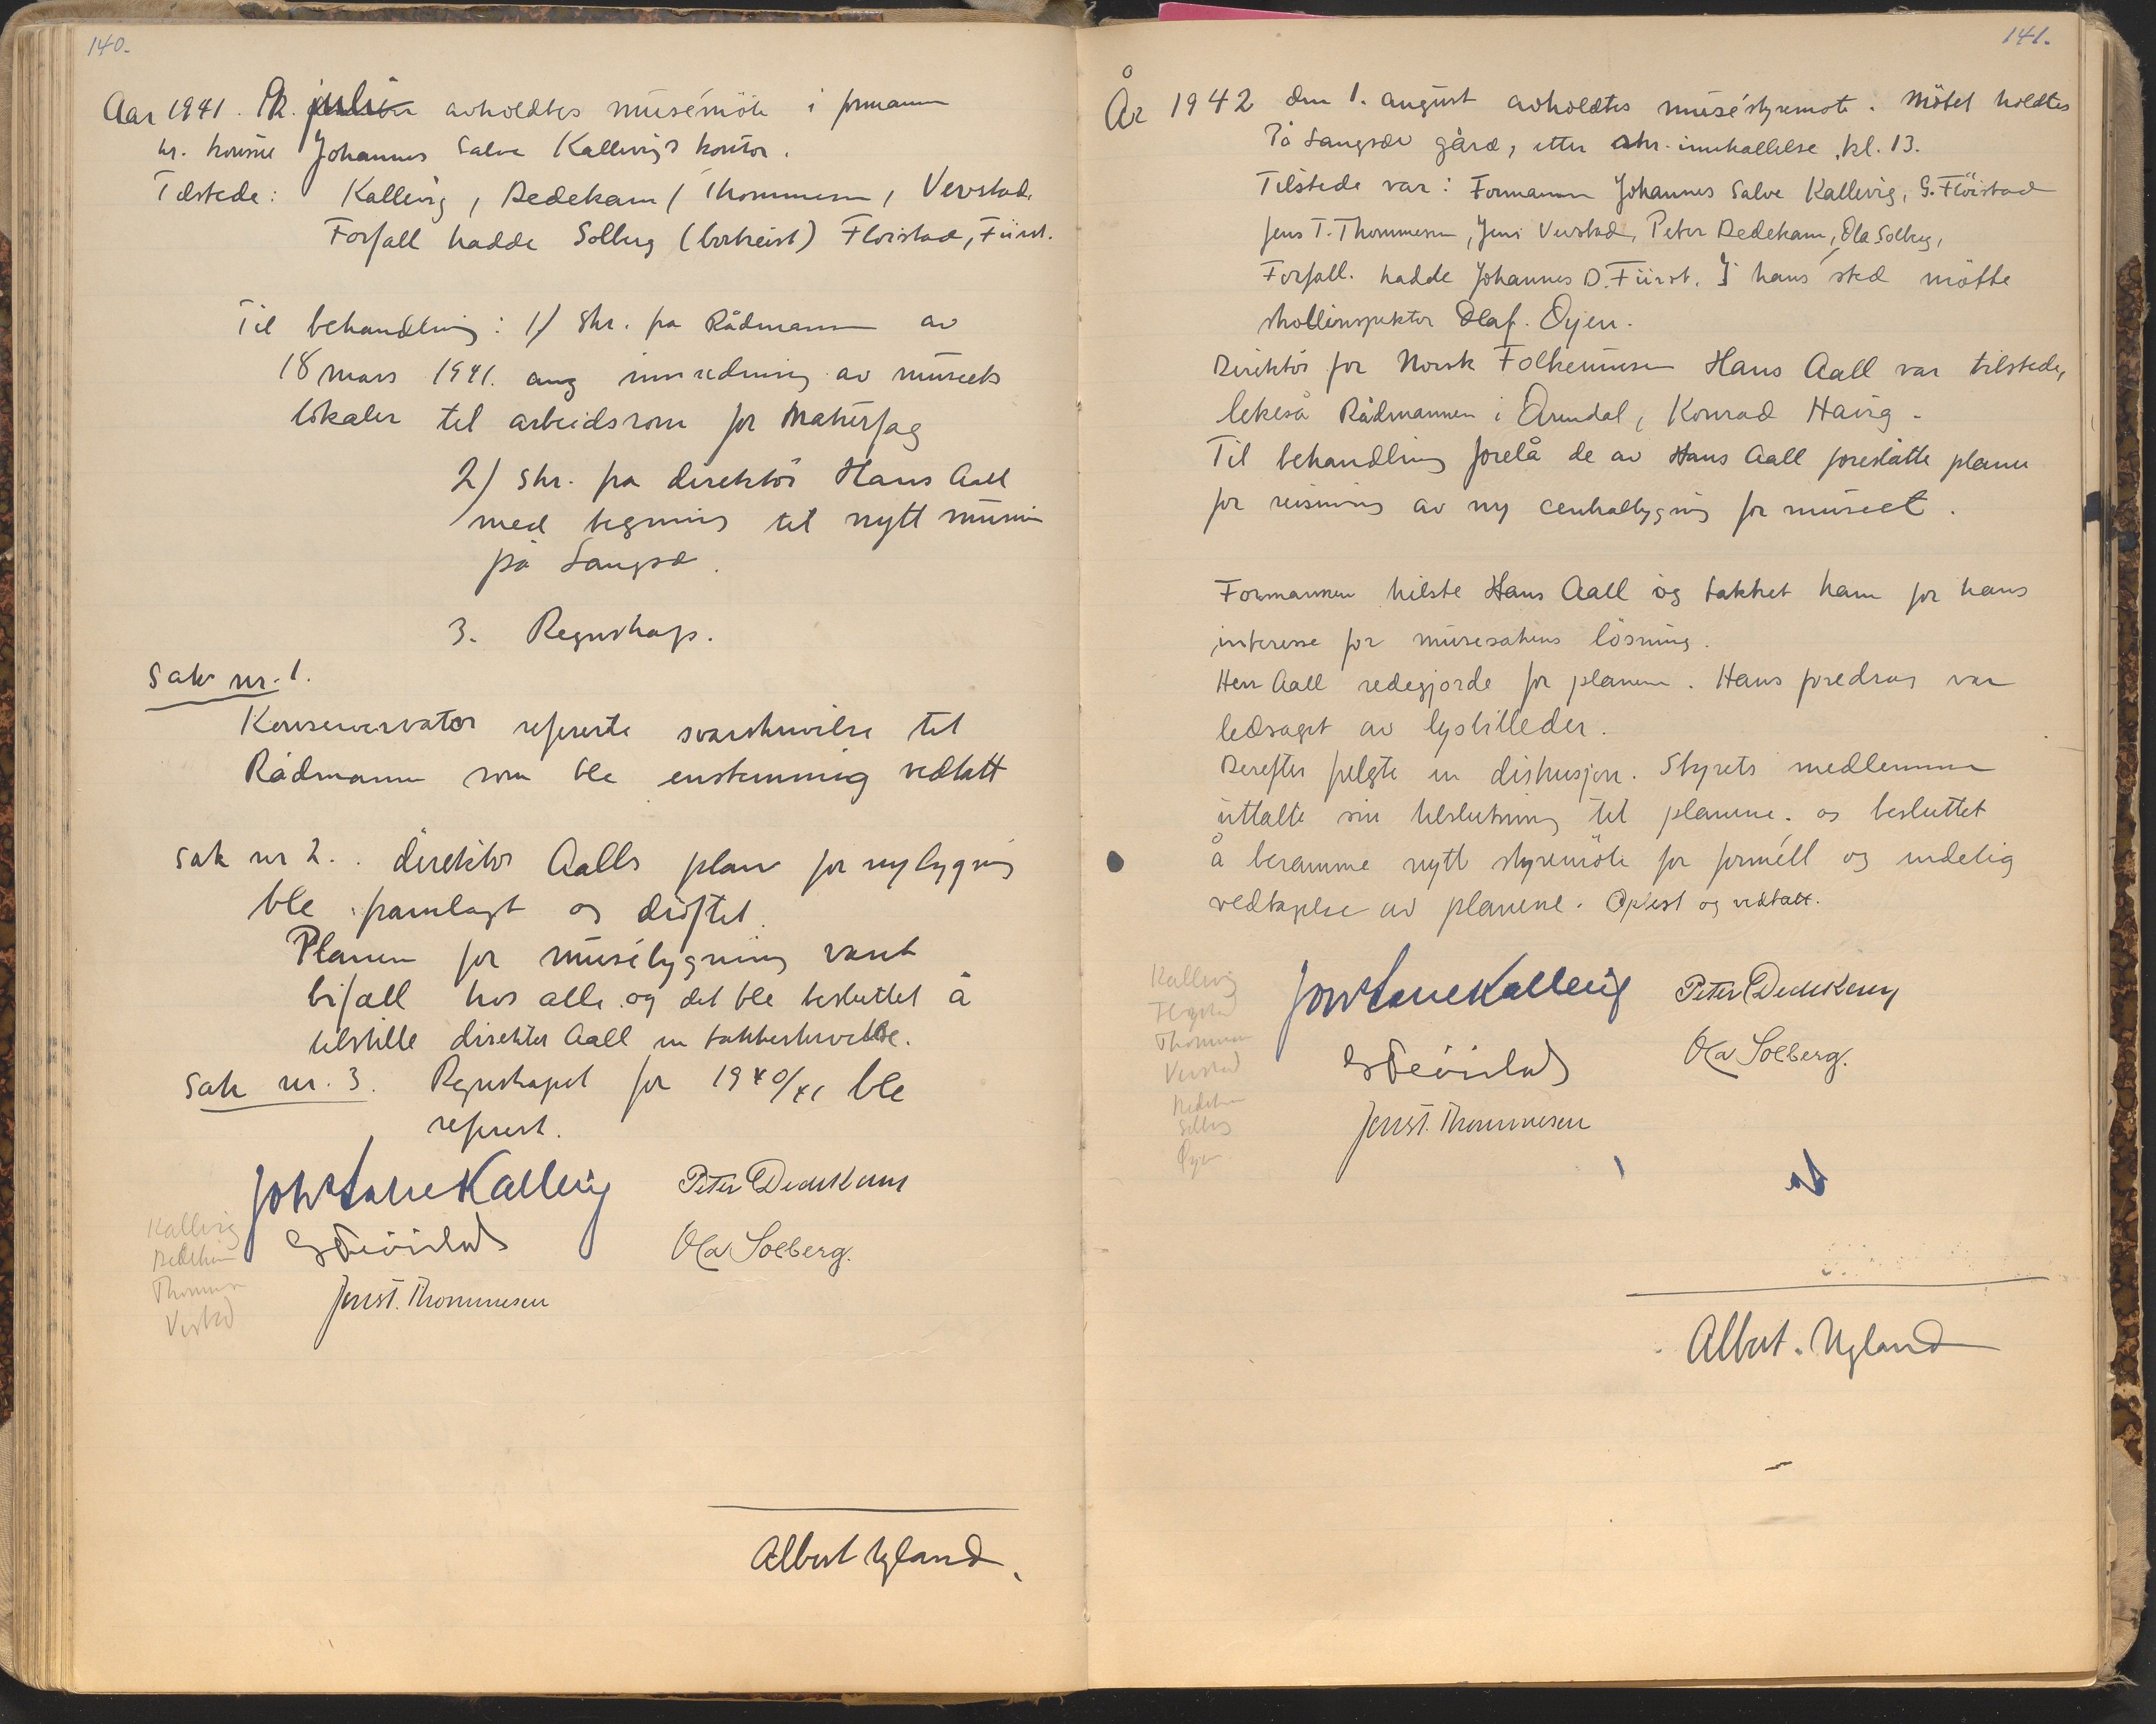 140.
Aar 1941. juli avholdtes musémöte i formannen
hr. konsul Johannes Salve Kallevigs kontor.
Tilstede: Kallevig, Dedekam, Thommesen, Vevstad.
Forfall hadde Solberg (bortreist) Flöistad, Fürst.
Til behandling: 1/ Skr. fra Rådmannen av
18 mars 1941. ang innredning av museets
lokaler til arbeidsrom for Naturfag
2/ Skr. fra direktör Hans Aall
med tegning til nytt museum
på Langsæ.
3. Regnskap.
Sak nr. 1.
Konservervator refererte svarskrivelse til
Rådmannen som ble enstemmig vedtatt
Sak nr 2.. direktör Aalls plan for nybygning
ble framlagt og dröftet.
Planen for musébygning vant
bifall hos alle og det ble besluttet å
tilstille direktör Aall en takkeskrivelse.
Sak nr. 3. Regnskapet for 1940/41 ble
referert.
Joh Salve Kallevig Peter Dedekam
Kallevig
G Flöistad Ola Solberg.
Dedekam
Thommesen
Jens T. Thommesen
Vevstad
Albert Ugland.
141.
År 1942 den 1. august avholdtes muséstyremöte. Mötet holdtes
På Langsæ gård, etter skr. innkallelse, kl. 13.
Tilstede var: Formannen Johannes Salve Kallevig, G. Flöistad
Jens T. Thommesen, Jens Vevstad, Peter Dedekam, Ola Solberg,
Forfall. hadde Johannes D. Fürst. I hans sted mötte
skolinspektör Olaf. Öyen.
Direktör for Norsk Folkemuseum Hans Aall var tilstede,
lekeså Rådmannen i Arendal, Konrad Havig.
Til behandling forelå de av Hans Aall foreslåtte planer
for reisning av ny centralbygning for museet.
Formannen hilste Hans Aall og takket ham for hans
interesse for musesakens lösning.
Herr Aall redegjorde for planene. Hans foredrag var
ledsaget av lysbilleder.
Derefter fulgte en diskusjon. Styrets medlemmer
uttalte sin tilslutning til planene. og besluttet
å beramme nytt styremöte for formell og endelig
vedtagelse av planene. Oplest og vedtatt.
Kallevig
Joh Salve Kallevig Peter Dedekam
Flöistad
Thommesen
G Flöistad Ola Solberg.
Vevstad
Dedekam
Jens T. Thommesen
Solberg
Öyen
Albert. Ugland